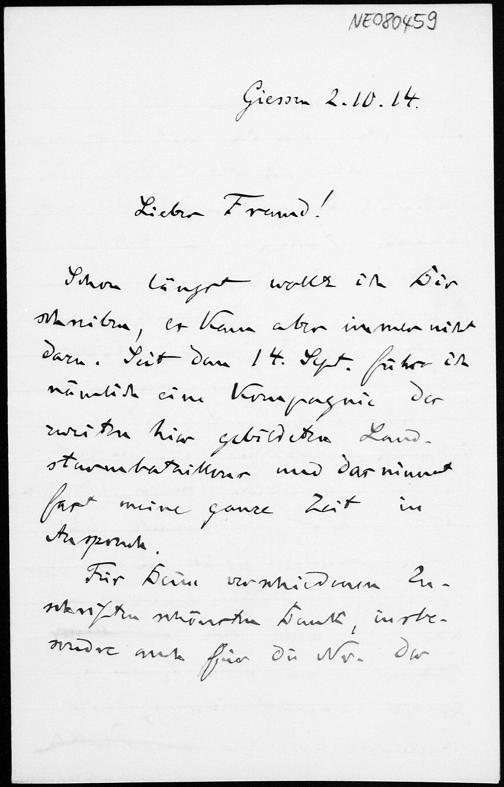 NE080459
Giessen 2.10.14.
Lieber Freund!
Schon längst wollte ich Dir
schreiben, es kam aber immer nicht
dazu. Seit dem 14. Sept. führe ich
nämlich eine Kompagnie des
zweiten hier gebildeten Land-
sturmbataillons und das nimmt
fast meine ganze Zeit in
Anspruch.
Für Deine verschiedenen Zu-
schriften schönsten Dank, insbe-
sondre auch für die No. der